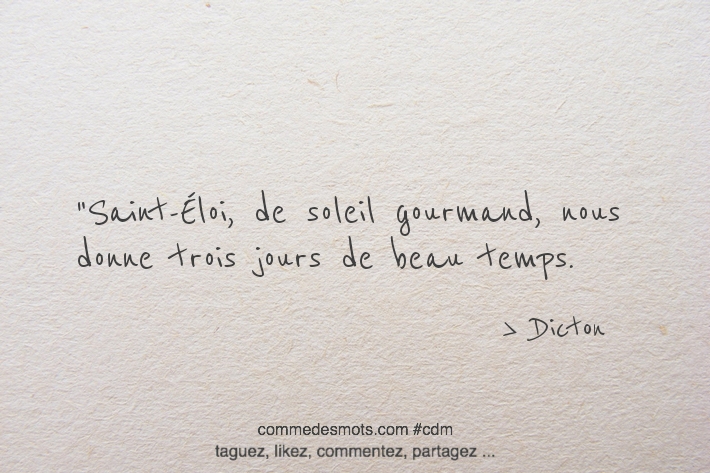 "Saint-Éloi, de soleil gourmand, nous
donne trois jours de beau temps.
> Dicton
commedesmots.com #cdm
taguez, likez, commentez, partagez ...